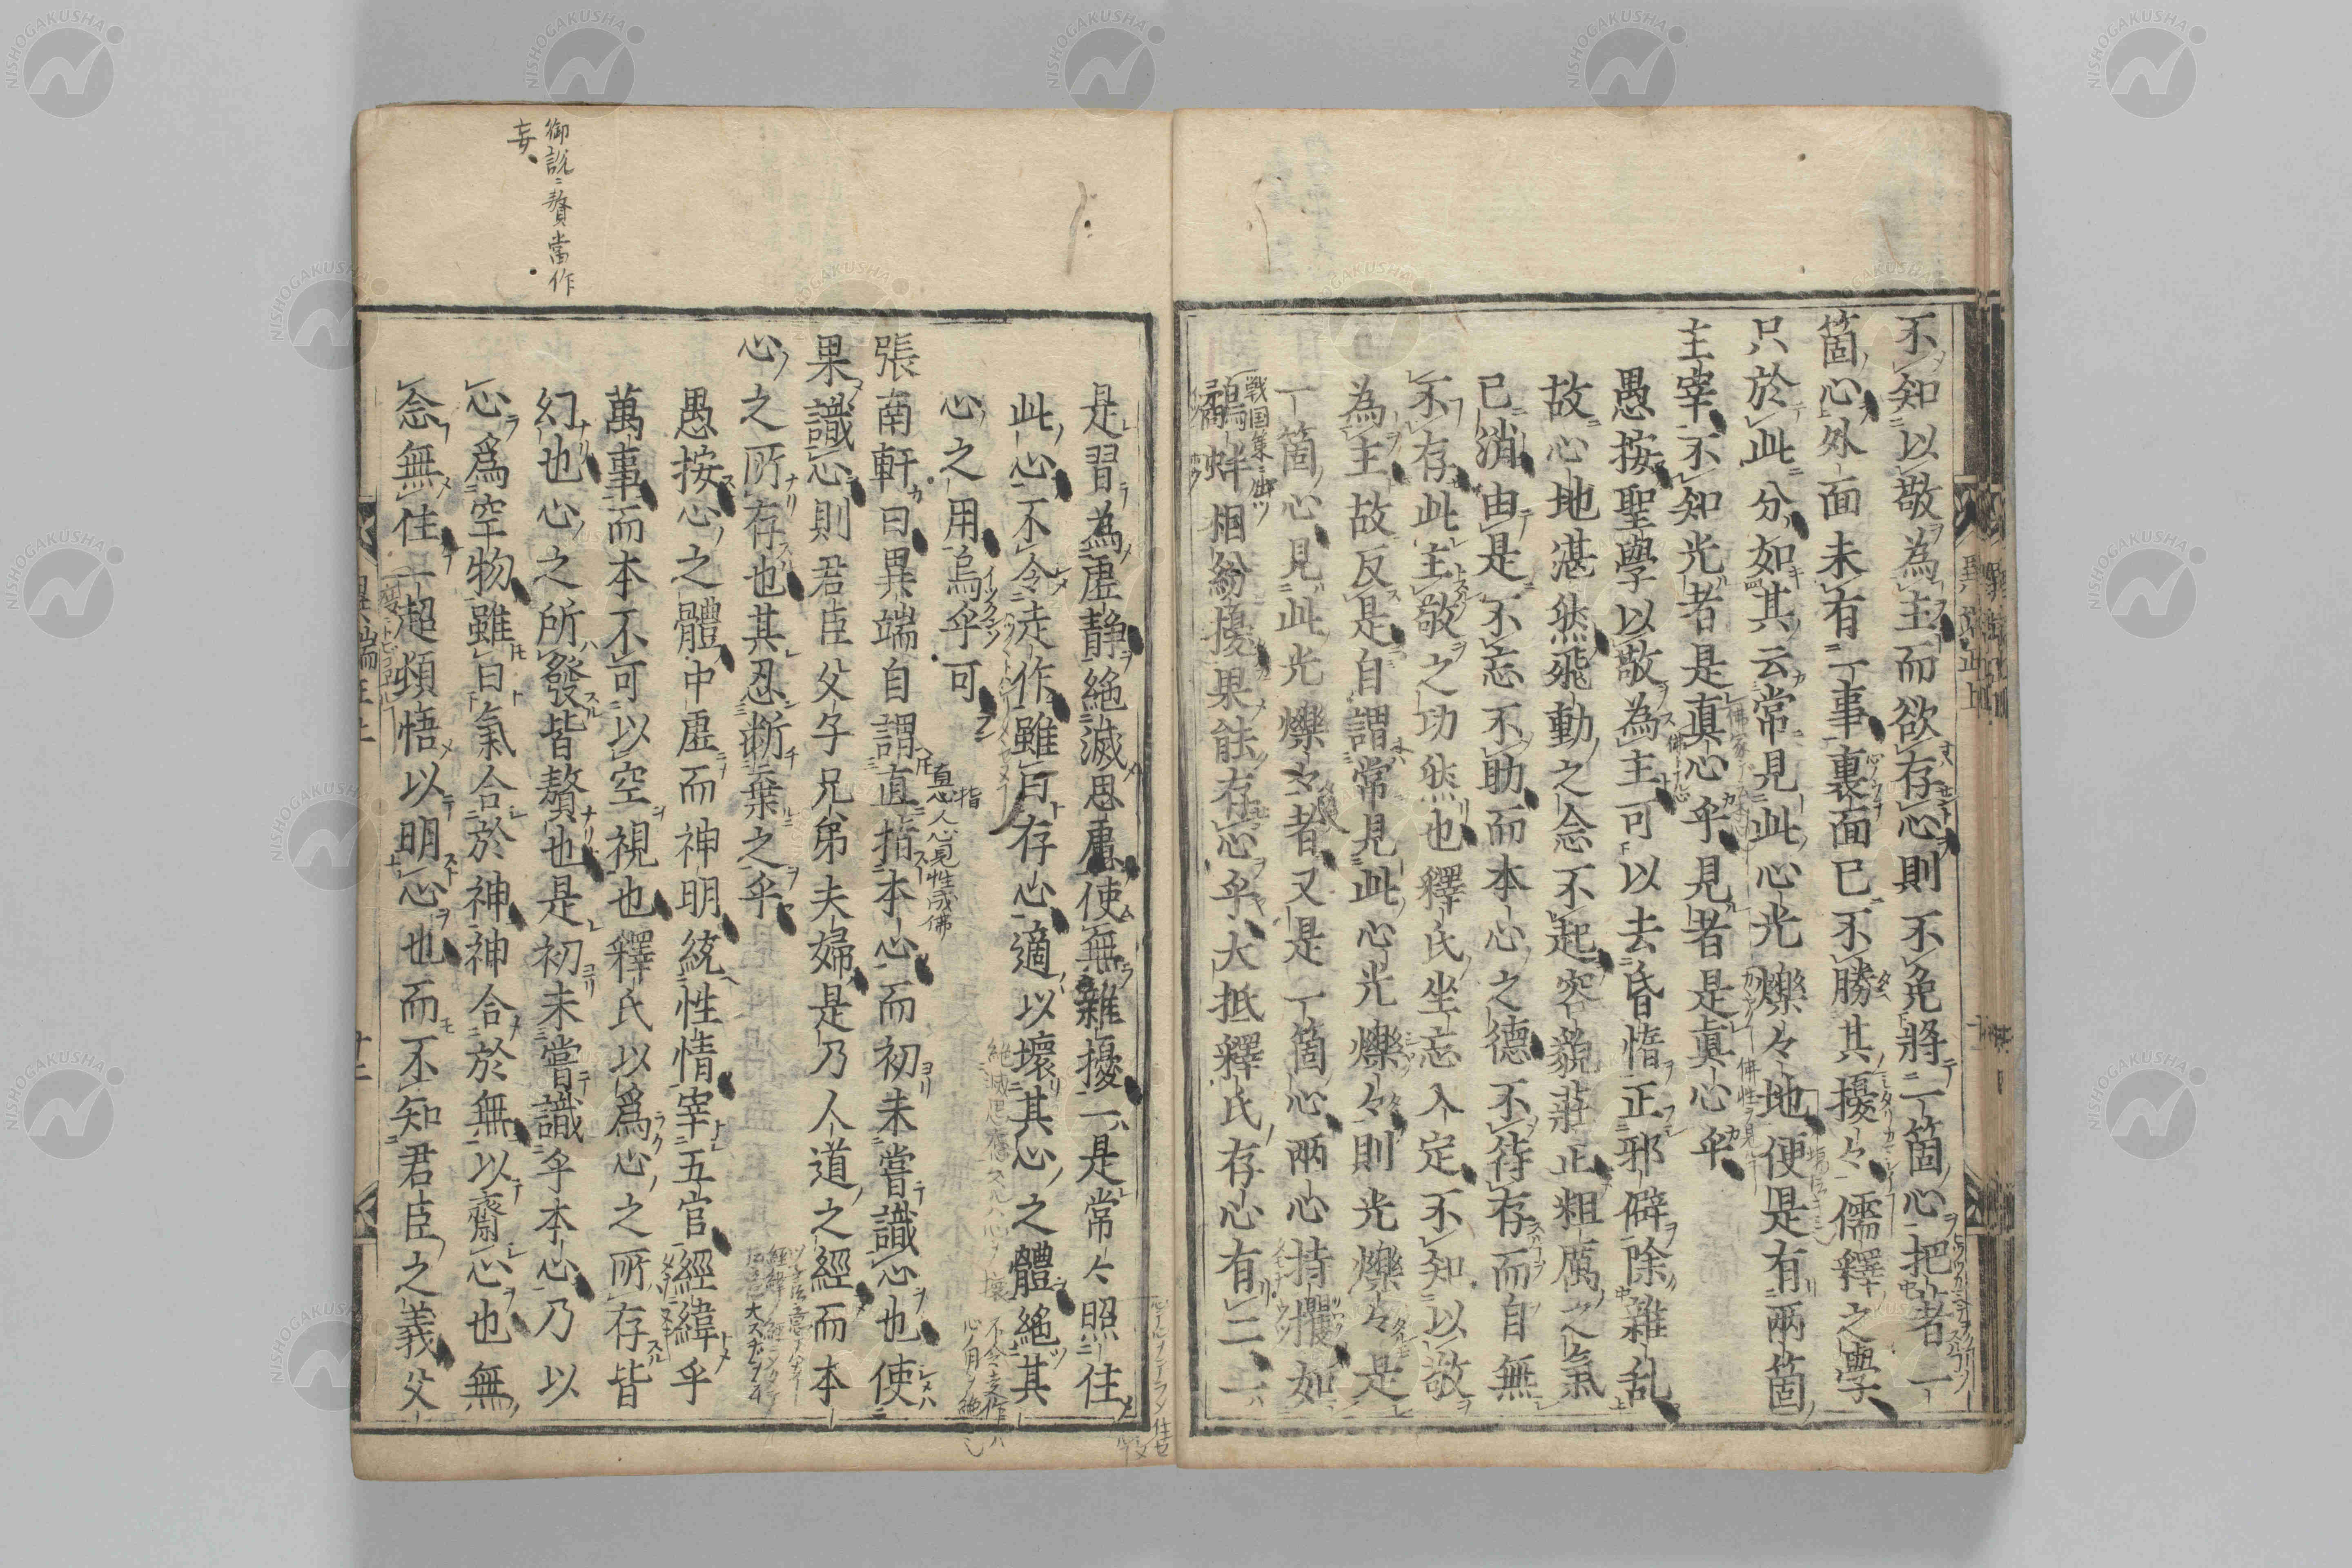 不知以敬為主而欲存心則不免將一箇心把著一
箇心外面未有一事裏面已不勝其擾々儒釋之學
只於此分如其云常見此心光爍々地便是有兩箇
主宰不知光者是真心乎見者是真心乎
愚按聖學以敬為主可以去昏惰正邪僻除雜乱
故心地湛然飛動之念不起容貌莊正粗厲之氣
已消由是不忘不助而本心之德不待存而自無
不存此主敬之功然也釋氏坐忘入定不知以敬
為主故反是自謂常見此心光爍々則光爍々是
一箇心見此光爍々者又是一箇心兩心持攫如
戦国策ニ出ツ
鷸蚌相紛擾果能存心乎大抵釋氏存心有二一
是習為虛静絶滅思慮使無雜擾一是常々照住
此心不令走作雖曰存心適以壞其心之體絶其
心之用烏乎可
張南軒曰異端自謂直指本心而初未嘗識心也使
直指人心見性成佛
果識心則君臣父子兄弟夫婦是乃人道之經而本
心之所存也其忍断棄之乎
愚按心之體中虛而神明統性情宰五官經緯乎
萬事而本不可以空視也釋氏以為心之所存皆
幻也心之所發皆贅也是初未嘗識乎本心乃以
心爲空物雖曰氣合於神神合於無以齋心也無
念無住一超頓悟以明心也而不知君臣之義父
御説ニ贅當作
妄
異端上
十二
NISHOGAKUSHA